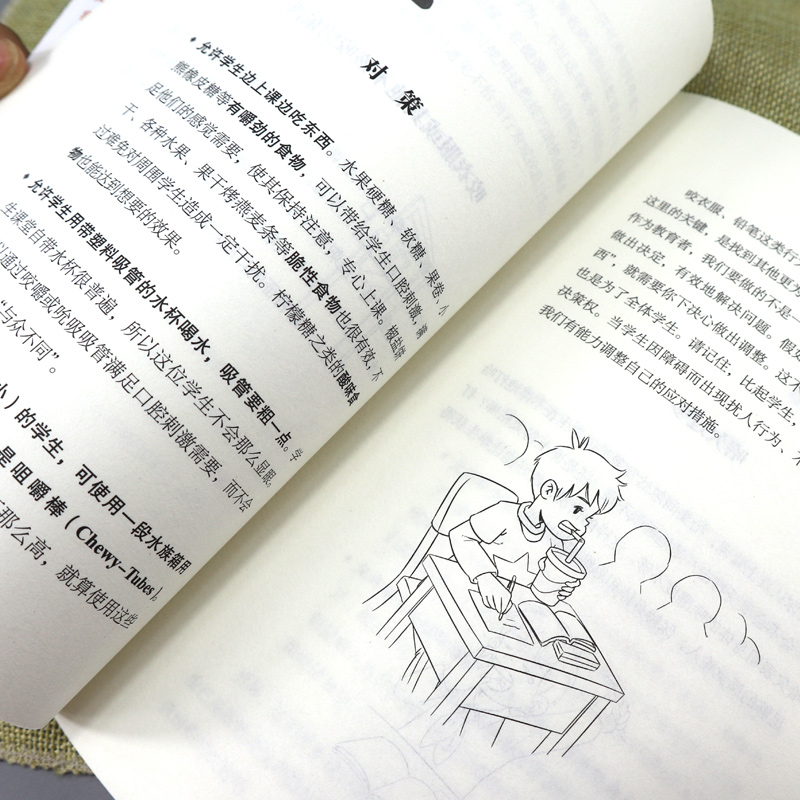 对策
允许学生边上课边吃东西。水果硬糖、软糖、果卷、小
熊橡皮糖等有嚼劲的食物，可以带给学生口腔刺激，满
足他们的感觉需要，使其保持注意，专心上课。椒盐饼
干、各种水果、果干烤燕麦条等脆性食物也很有效，不
过难免对周围学生造成一定干扰。柠檬糖之类的酸味食
物也能达到想要的效果。
允许学生用带塑料吸管的水杯喝水，吸管要粗一点。学
生课堂自带水杯很普遍，所以这位学生不会那么显眼。
通过咬嚼或吮吸吸管满足口腔刺激需要，而不会
“与众不同”。
小）的学生，可使用一段水族箱用
是咀嚼棒（Chewy-Tubes）。
那么高，就算使用这些
咬衣服、铅笔这类行
这里的关键，是找到其他更
作为教育者，我们要做的不是
做出决定，有效地解决问题。假
西”，就需要你下决心做出调整。这不
也是为了全体学生。请记住，比起学生，
决策权。当学生因障碍而出现扰人行为、
我们有能力调整自己的应对措施。